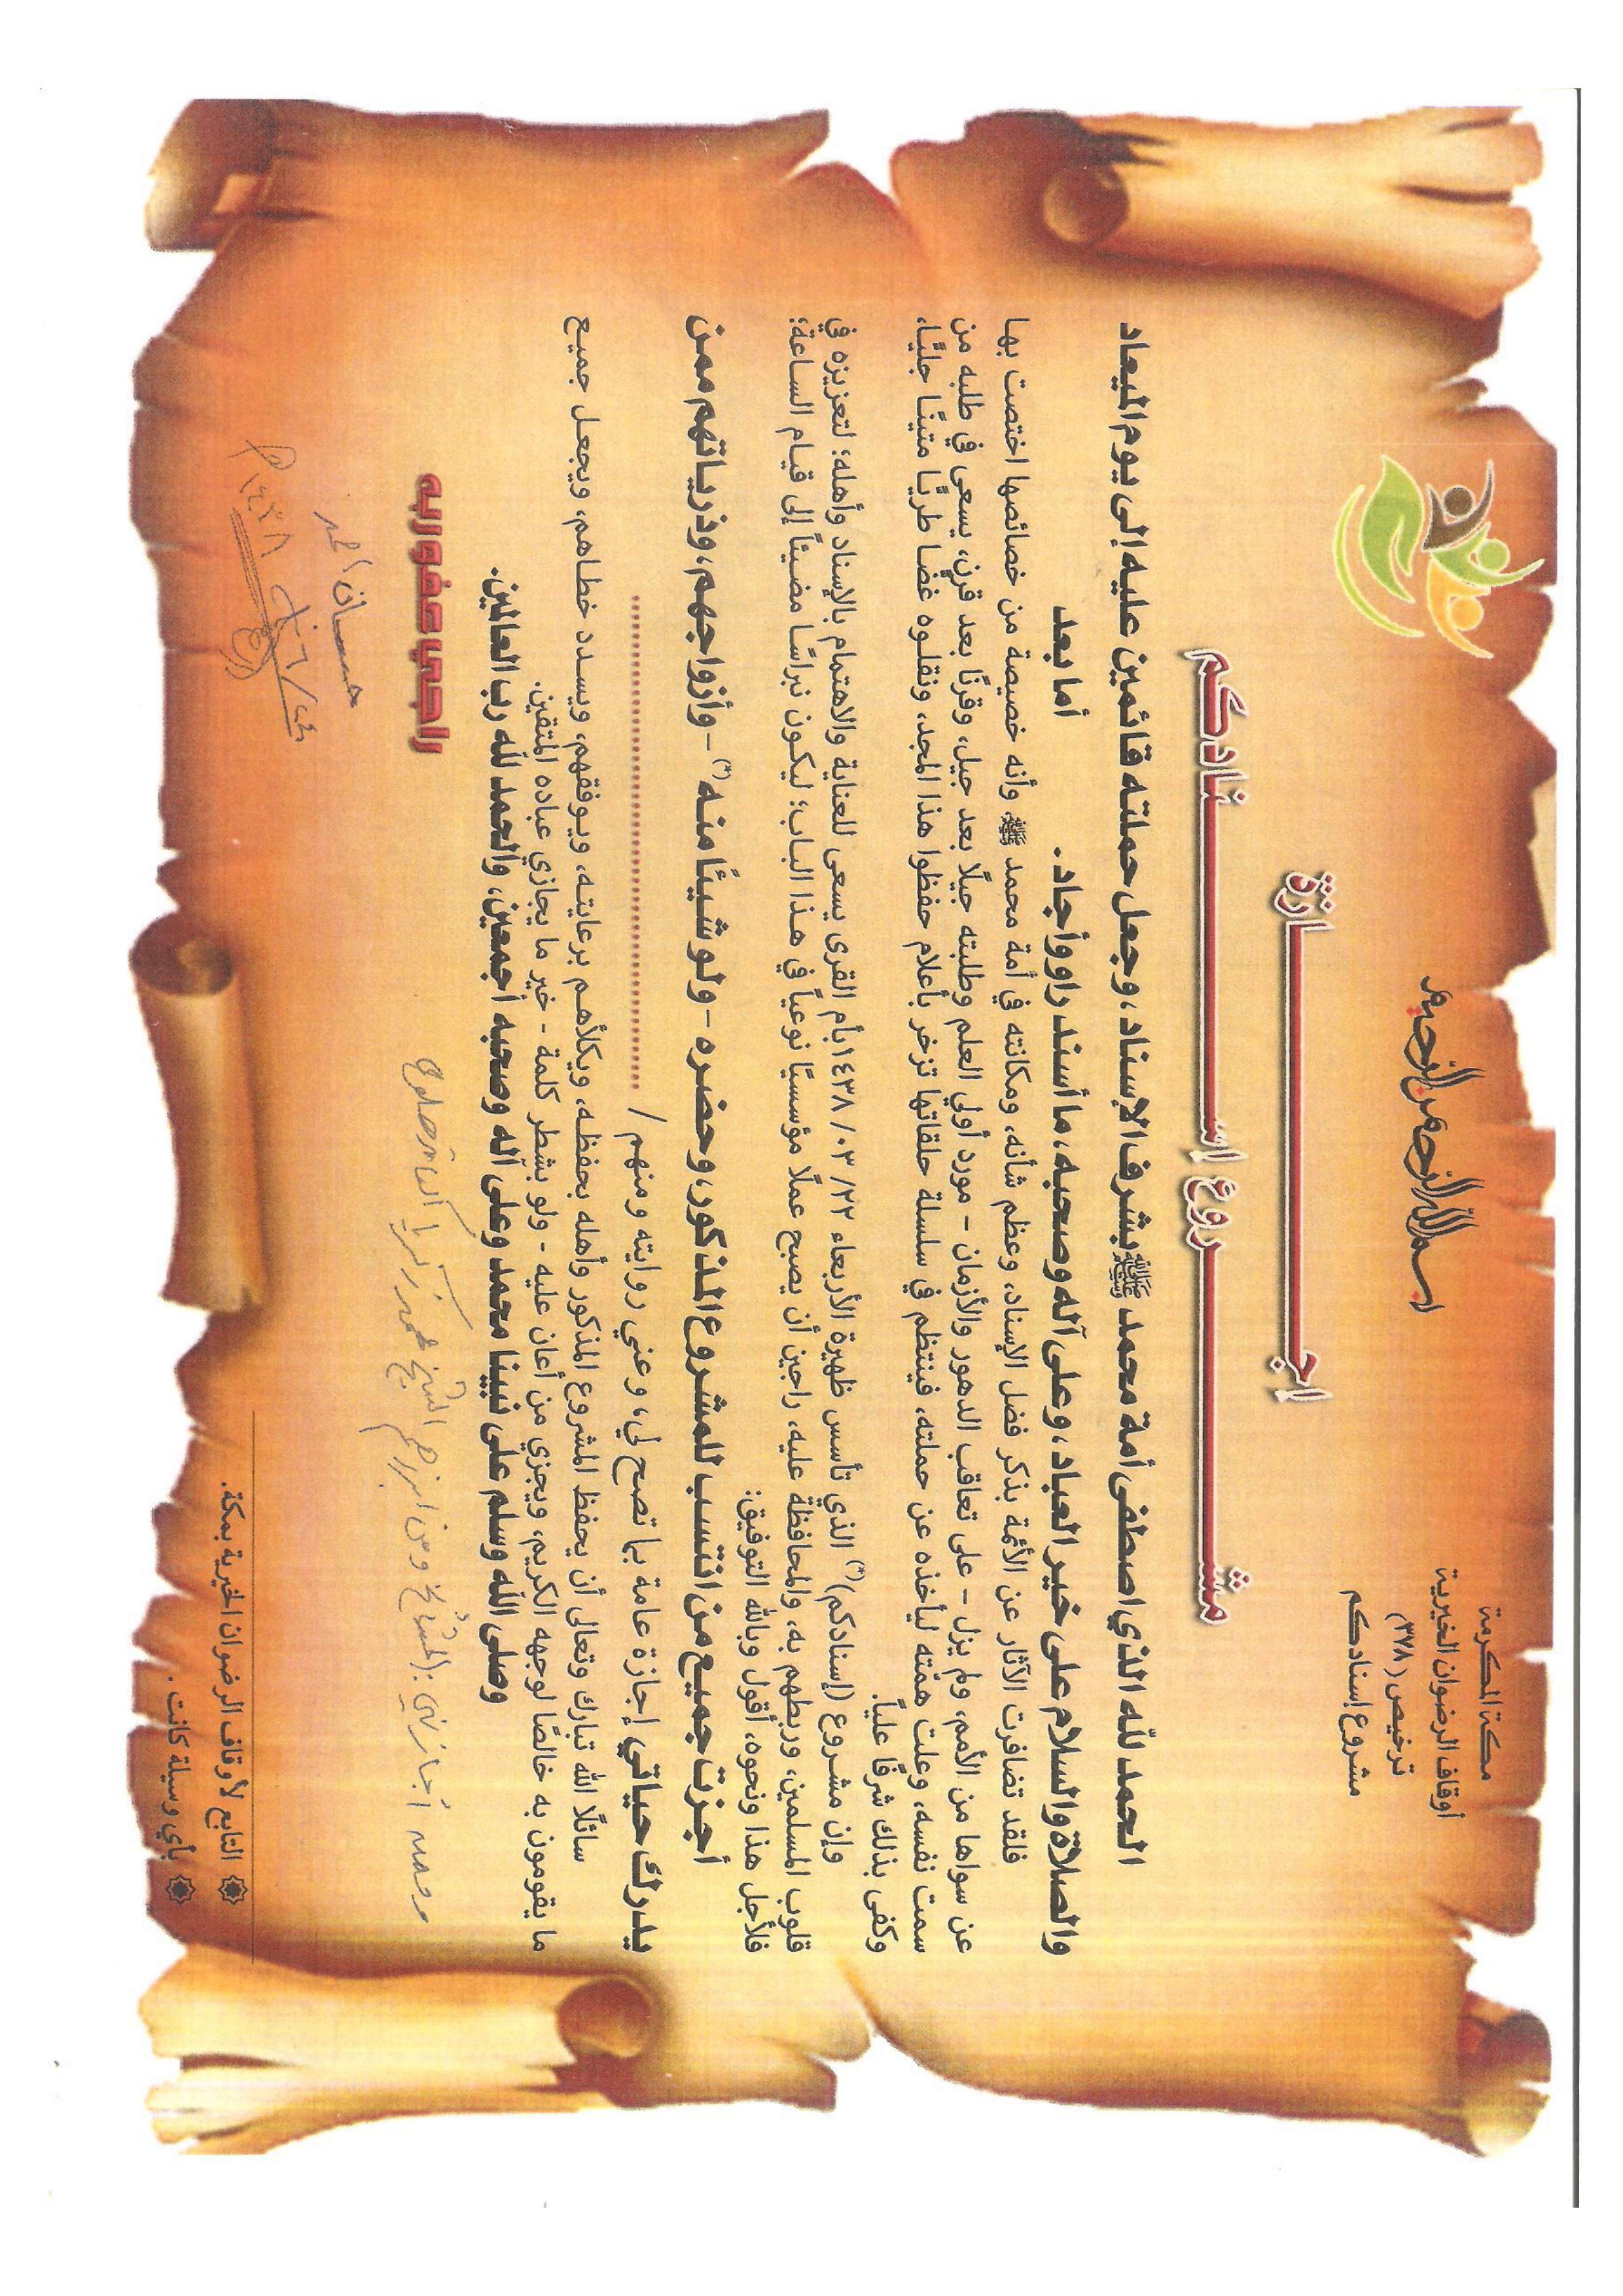 مكة المكرمة
أوقاف الرضوان الخيرية
ترخيص (٣٧٨)
مشروع إسنادكم
بسم الله الرحمن الرحيم
اجـــازة
مشـــروع إســـنادكم
الحمد لله الذي اصطفى أمة محمد ﷺ بشرف الإسناد، وجعل حملته قائمين عليه إلى يوم الميعاد
والصلاة والسلام على خير العباد، وعلى آله وصحبه، ما أسند راو وأجاد. أما بعد
فلقد تضافرت الآثار عن الأئمة بذكر فضل الإسناد، وعظم شأنه، ومكانته في أمة محمد ﷺ، وأنه خصيصة من خصائصها اختصت بها
عن سواها من الأمم، ولم يزل - على تعاقب الدهور والأزمان - مورد أولي العلم وطلبته جيلًا بعد جيل، وقرنًا بعد قرن، يسعى في طلبه من
سمت نفسه، وعلت همّته ليأخذه عن حملته، فينتظم في سلسلة حلقاتها تزخر بأعلام حفظوا هذا المجد، ونقلوه غضًا طريًا متينًا جليًا،
وكفى بذلك شرفًا عليًا.
وإن مشروع (إسنادكم)(*) الذي تأسس ظهيرة الأربعاء ٢٢/ ٠٣/ ١٤٣٨ بأم القرى يسعى للعناية والاهتمام بالإسناد وأهله؛ لتعزيزه في
قلوب المسلمين، وربطهم به، والمحافظة عليه، راجين أن يصبح عملًا مؤسسيًا نوعياً في هذا الباب؛ ليكون نبراسًا مضيئاً إلى قيام الساعة؛
فلأجل هذا ونحوه، أقول وبالله التوفيق:
أجزت جميع من انتسب للمشروع المذكور، وحضره - ولو شيئًا منه (*) - وأزواجهم، وذرياتهم ممن
يدرك حياتي إجازة عامة بما تصح لي، وعني روايته ومنهم / ..............................
سائلًا الله تبارك وتعالى أن يحفظ المشروع المذكور وأهله بحفظه، ويكلأهم برعايته، ويوفقهم، ويسدد خطاهم، ويجعل جميع
ما يقومون به خالصًا لوجهه الكريم، ويجزي من أعان عليه - ولو بشطر كلمة - خير ما يجازي عباده المتقين.
وصلى الله وسلم على نبينا محمد وعلى آله وصحبه أجمعين، والحمد لله رب العالمين.
راجي عفو ربه
أجازني المشايخ ومن أبرزهم الشيخ محمد زكريا
١٤٣٨
التابع لأوقاف الرضوان الخيرية بمكة.
بأي وسيلة كانت.